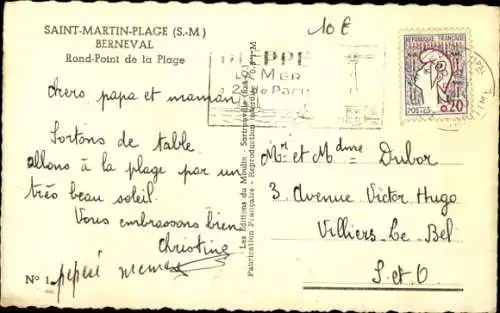 SAINT-MARTIN-PLAGE (S.-M.)
BERNEVAL
Rond-Point de la Plage
10 €
DIEPPE
LA MER
à 2h de Paris
REPUBLIQUE FRANÇAISE
POSTES 0,20
chers papa et maman
Sortons de table
allons à la plage par un
très beau soleil.
Vous embrassons bien
Christine
pépéré mémé
N° 1
Les Editions du Moulin Sartrouville (S.-&-O.)
Fabrication Française - Reproduction interdite
Mr et Mdme Dubor
3 Avenue Victor Hugo
Villiers Le Bel
S. et O